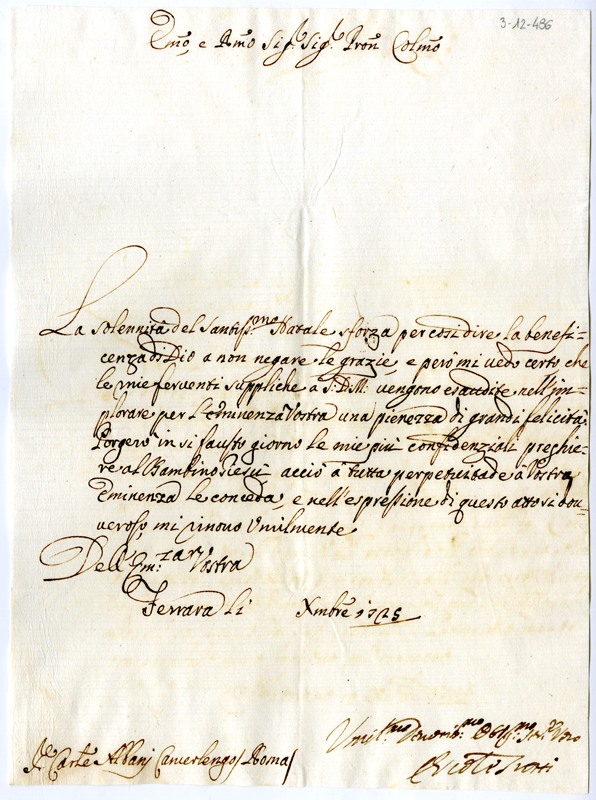 3-12-486
Emo, e Rmo Sigr. Sigr. Pron Colmo
La solennità del Santiss.mo Natale sforza per così dire la benefi-
cenza di Dio a non negare le grazie, e però mi vedo certo che
le mie ferventi suppliche a S. D. M. vengono esaudite nell'im-
plorare per l'Eminenza Vostra una pienezza di grandi felicità.
Porgerò in si fausto giorno le mie più confidenziali preghie-
re al Bambino Giesù acciò a tutta perpetuitade à Vostra
Eminenza le conceda, e nell'espressione di questo atto si dou-
veroso, mi rinovo Umilmente
Dell'Em.za Vostra
Ferrara li Xmbre 1725
Umil.mo Devotis.mo Obl.mo Ser.re Vero
Sr Carle Albani Camerlengo Roma